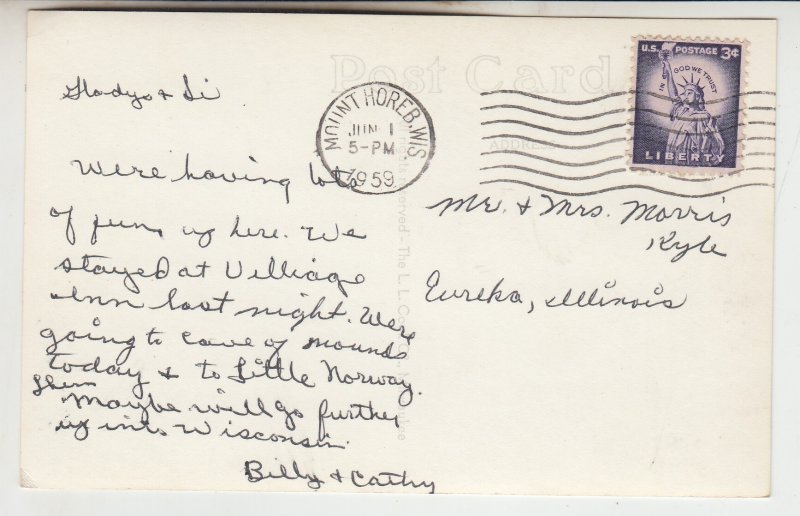 Post Card
U.S. POSTAGE 3¢
IN GOD WE TRUST
LIBERTY
MOUNT HOREB, WIS.
JUN 1
5-PM
1959
ADDRESS
Gladys & Si
Were having lots
of fun up here. We
stayed at Villiage
Inn last night. Were
going to Cave of mounds
today & to Little Norway.
Then
Maybe will go further
up into Wisconsin.
Billy & Cathy
Mr. & Mrs. Morris
Kyle
Eureka, Illinois